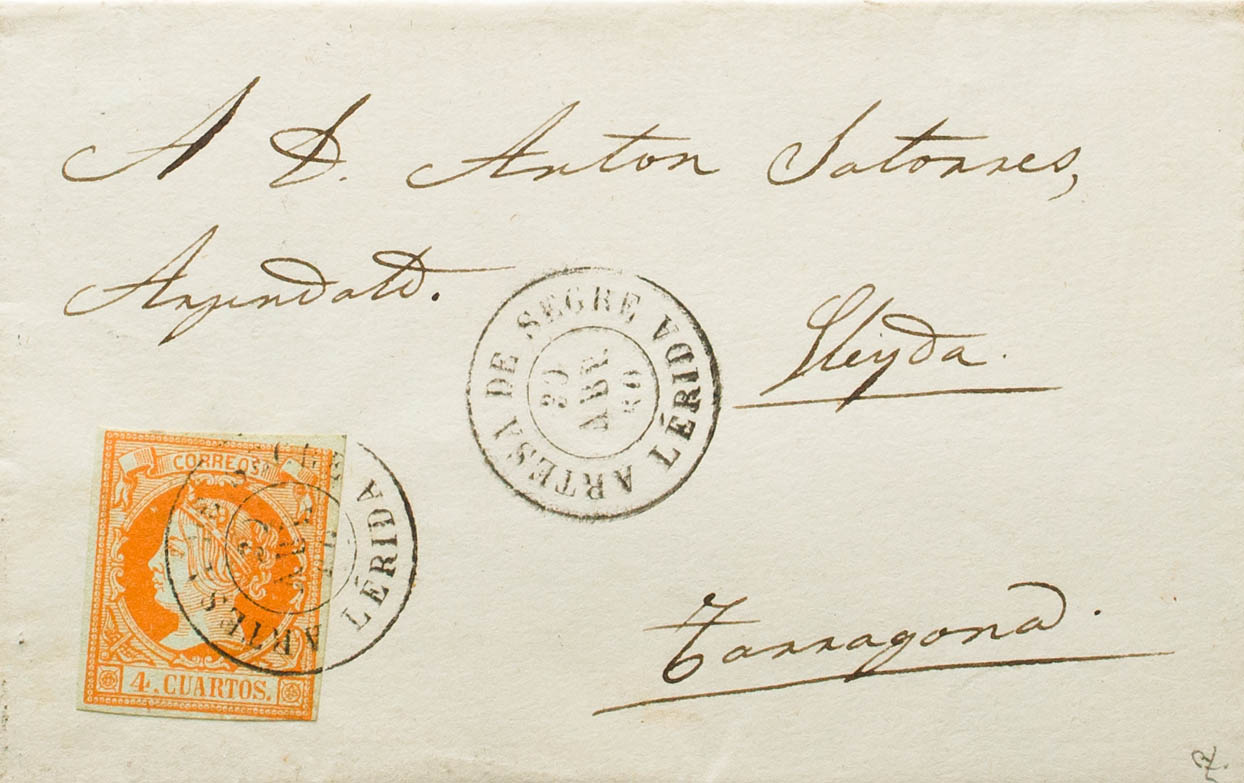 A D. Anton Satorres,
Arrendatº.
Lleyda.
Tarragona.
ARTESA DE SEGRE LÉRIDA
20 ABR 60
CORREOS
4. CUARTOS.
ARTES LÉRIDA